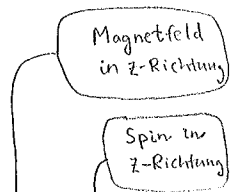 Magnetfeld
in z-Richtung
Spin in
z-Richtung